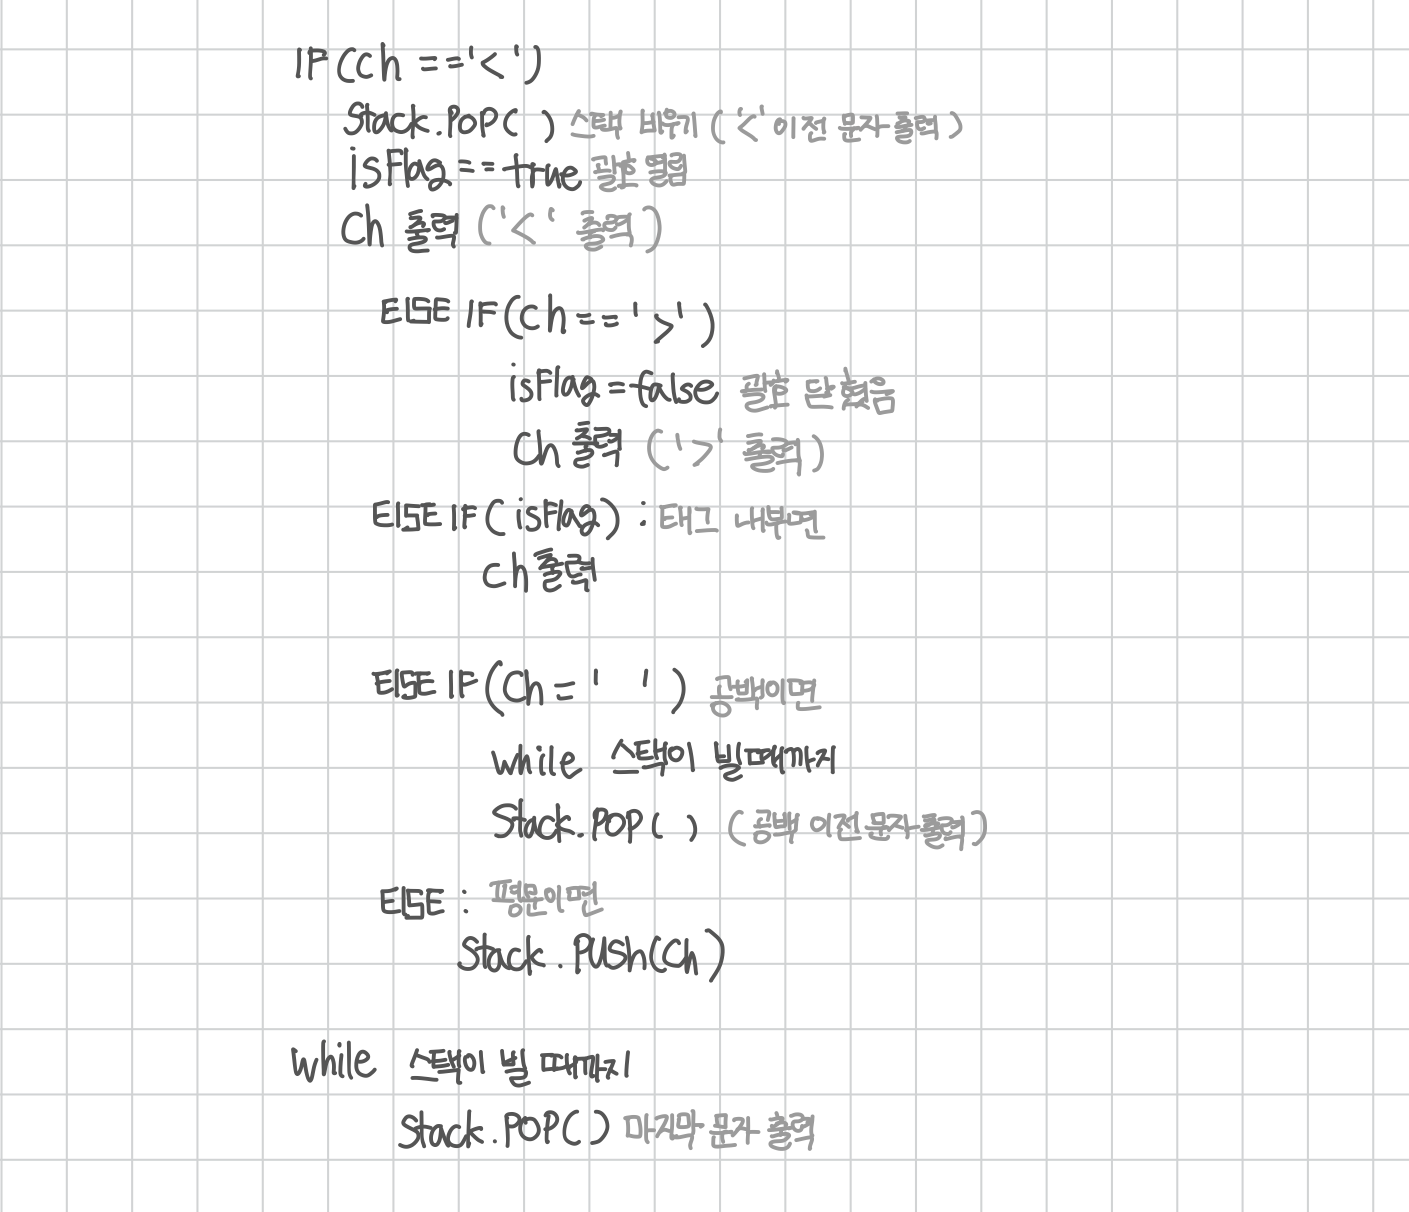 IF(ch =='<')
Stack.POP( ) 스택 비우기 ('<' 이전 문자 출력)
isFlag == true 괄호 열림
ch 출력 ('<' 출력)
ELSE IF(ch == '>')
isFlag = false 괄호 닫혔음
ch 출력 ('>' 출력)
ELSE IF( isFlag) : 태그 내부면
ch 출력
ELSE IF(ch = ' ') 공백이면
while 스택이 빌때까지
Stack.POP( ) (공백 이전 문자 출력)
ELSE : 평문이면
Stack.PUSh(ch)
while 스택이 빌 때까지
Stack.POP() 마지막 문자 출력